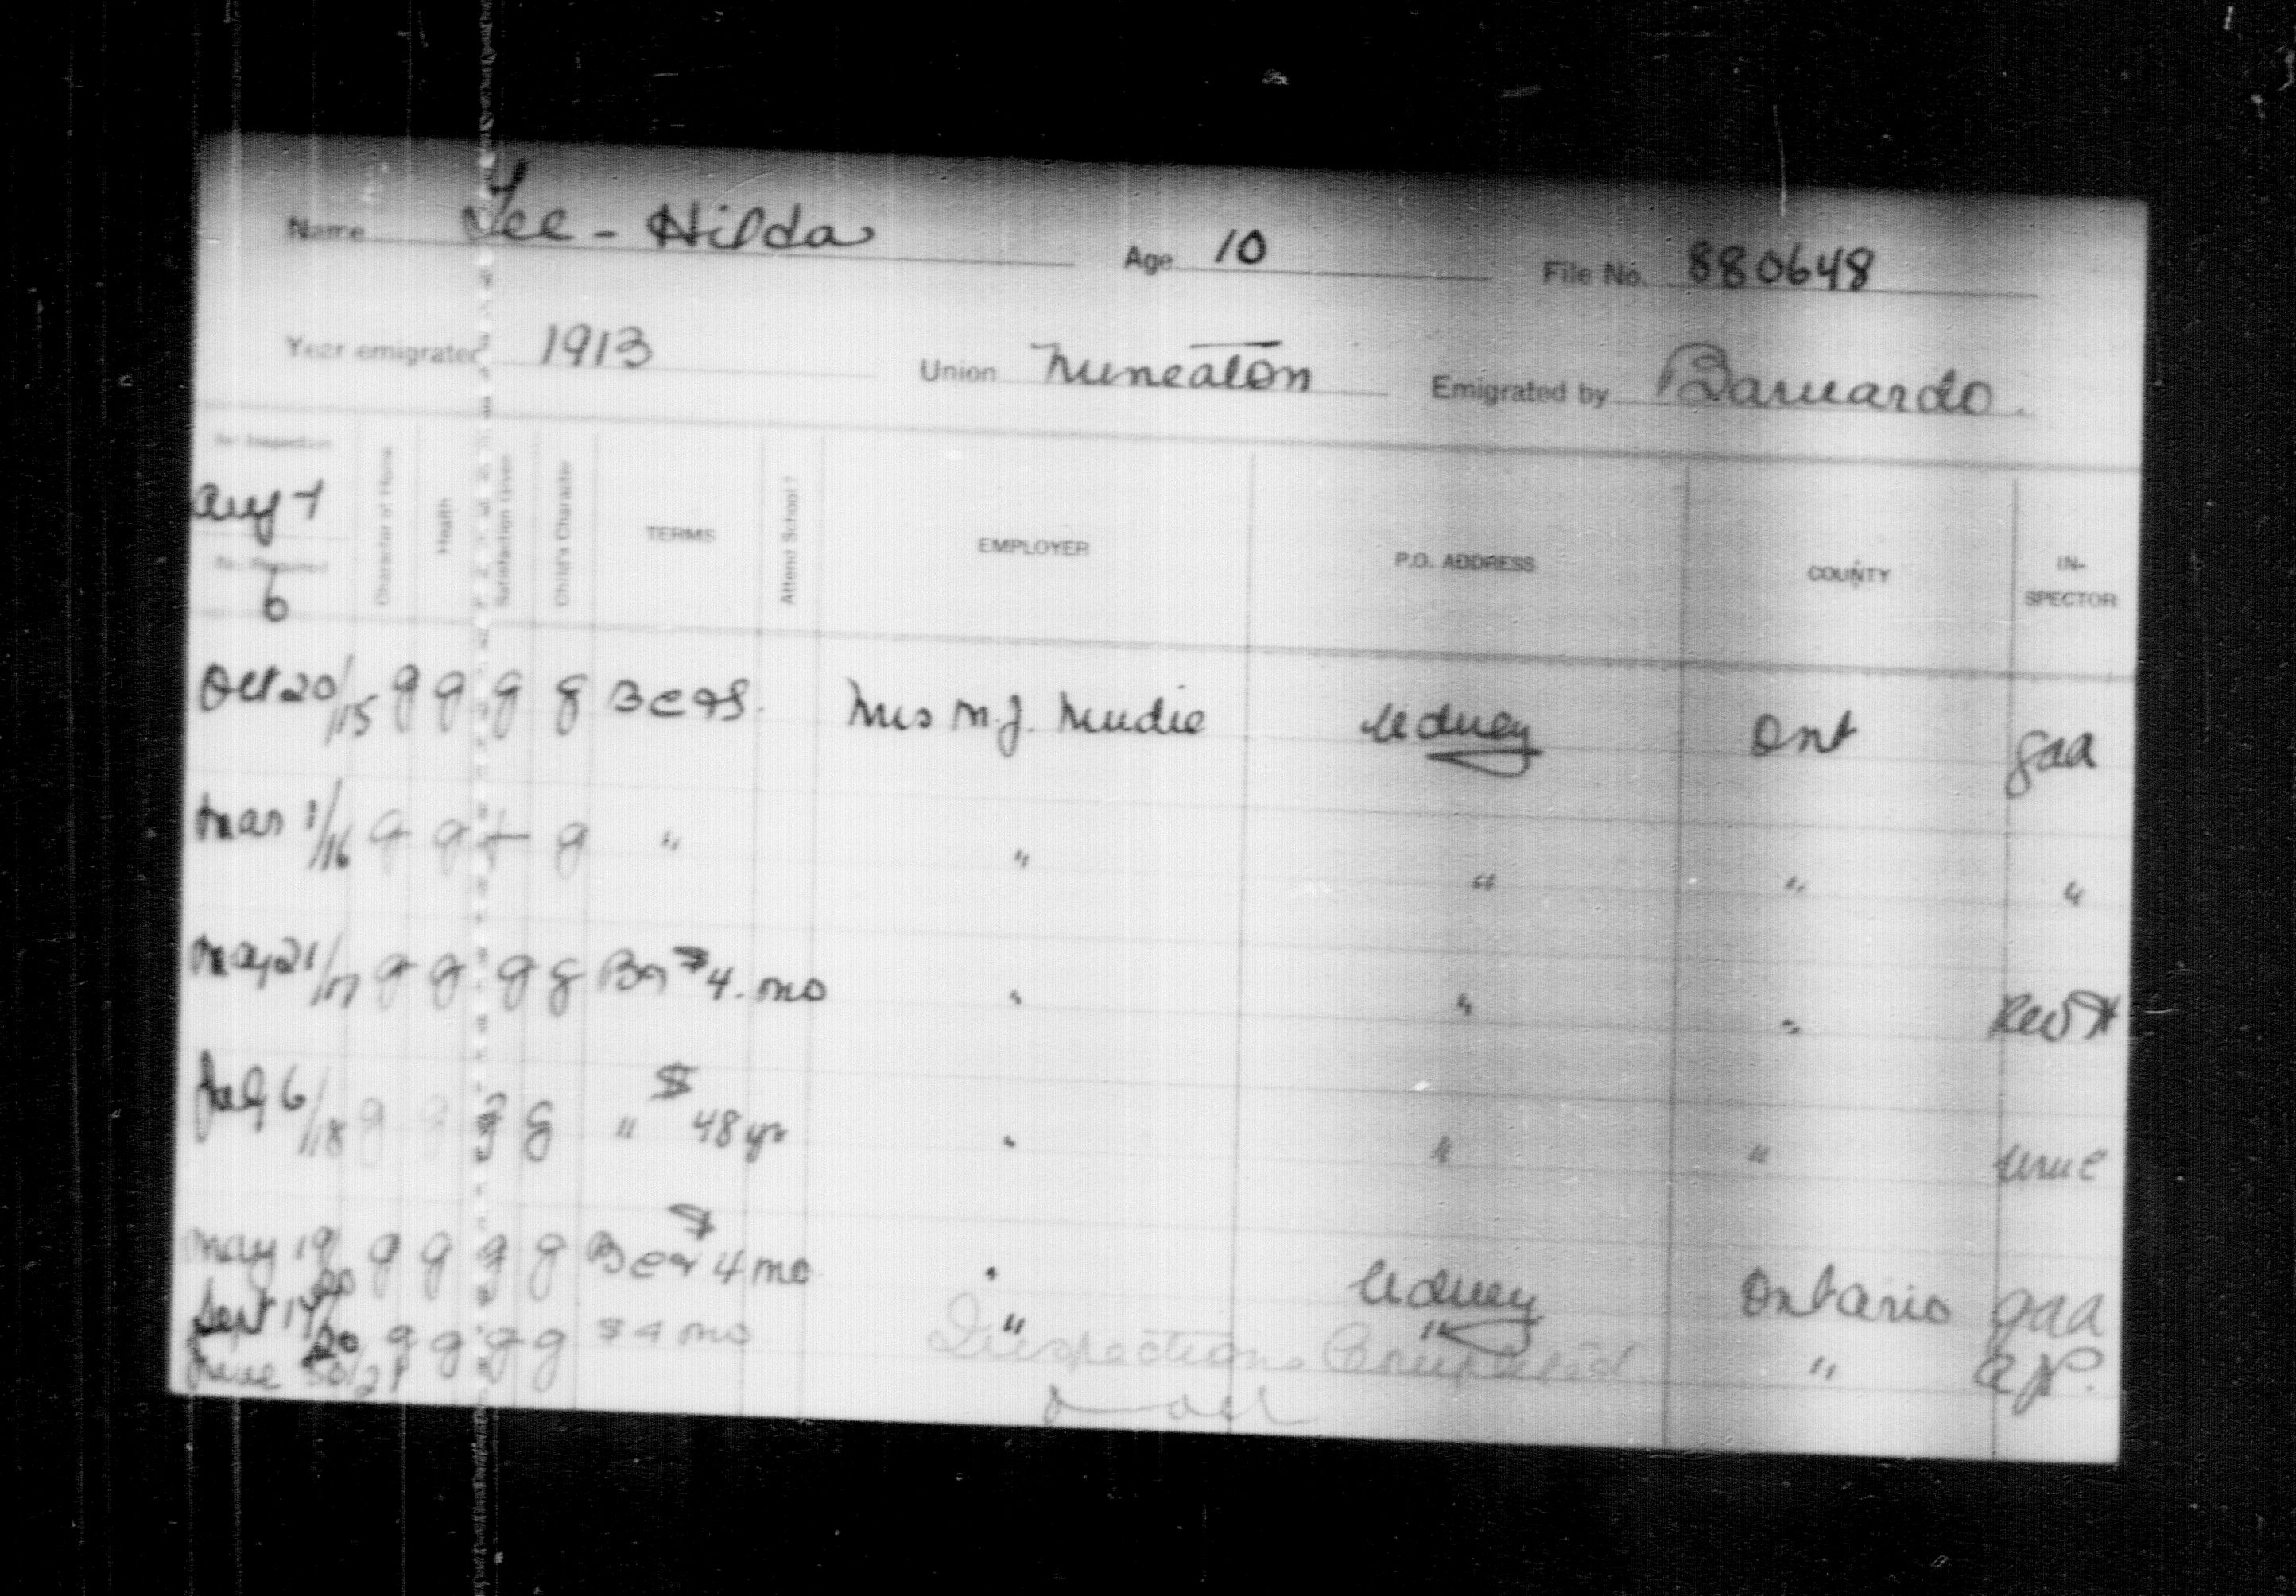 Name Lee - Hilda Age 10 File No. 880648
Year emigrated 1913 Union Nuneaton Emigrated by Barnardo.
1st Inspection
Aug 1
No. Required
6
Character of Home
Health
Satisfaction Given
Child's Character
TERMS
Attend School?
EMPLOYER
P.O. ADDRESS
COUNTY
IN-SPECTOR
Oct 20/15 g g g g B C & S. Mrs M. J. Mudie Udney Ont gaa
Mar 1/16 g g g " " " " "
May 21/17 g g g g B & $4. mo " " "
July 6/18 g g g g " $48 yr " " "
May 19/20 g g g g B C & $4 mo " Udney Ontario gaa
Sept 14/20 g g g g $4 mo " " "
June 30/21 Inspections Completed